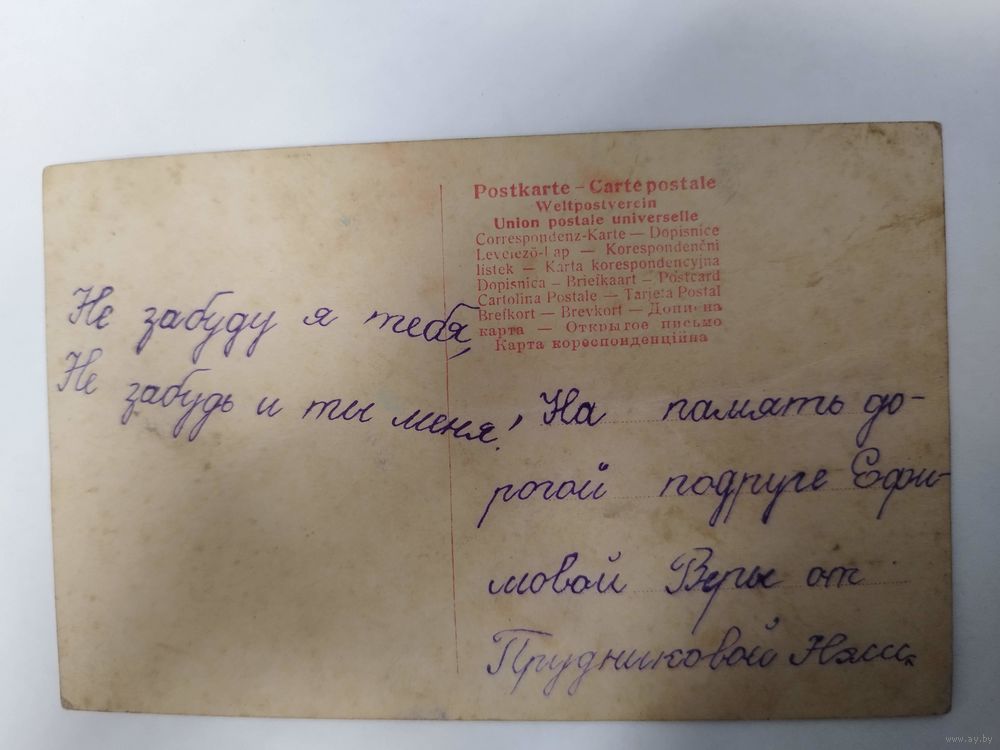 Postkarte – Carte postale
Weltpostverein
Union postale universelle
Correspondenz-Karte — Dopisnice
Levelező-Lap — Korespondenční
listek — Karta korespondencyjna
Dopisnica — Briefkaart — Postcard
Cartolina Postale — Tarjeta Postal
Brefkort — Brevkort — Допис на
карта — Открытое письмо
Карта кореспонденційна
Не забуду я тебя,
Не забудь и ты меня!
На память до-
рогой подруге Ефи-
мовой Веры от
Прудниковой
www.ay.by